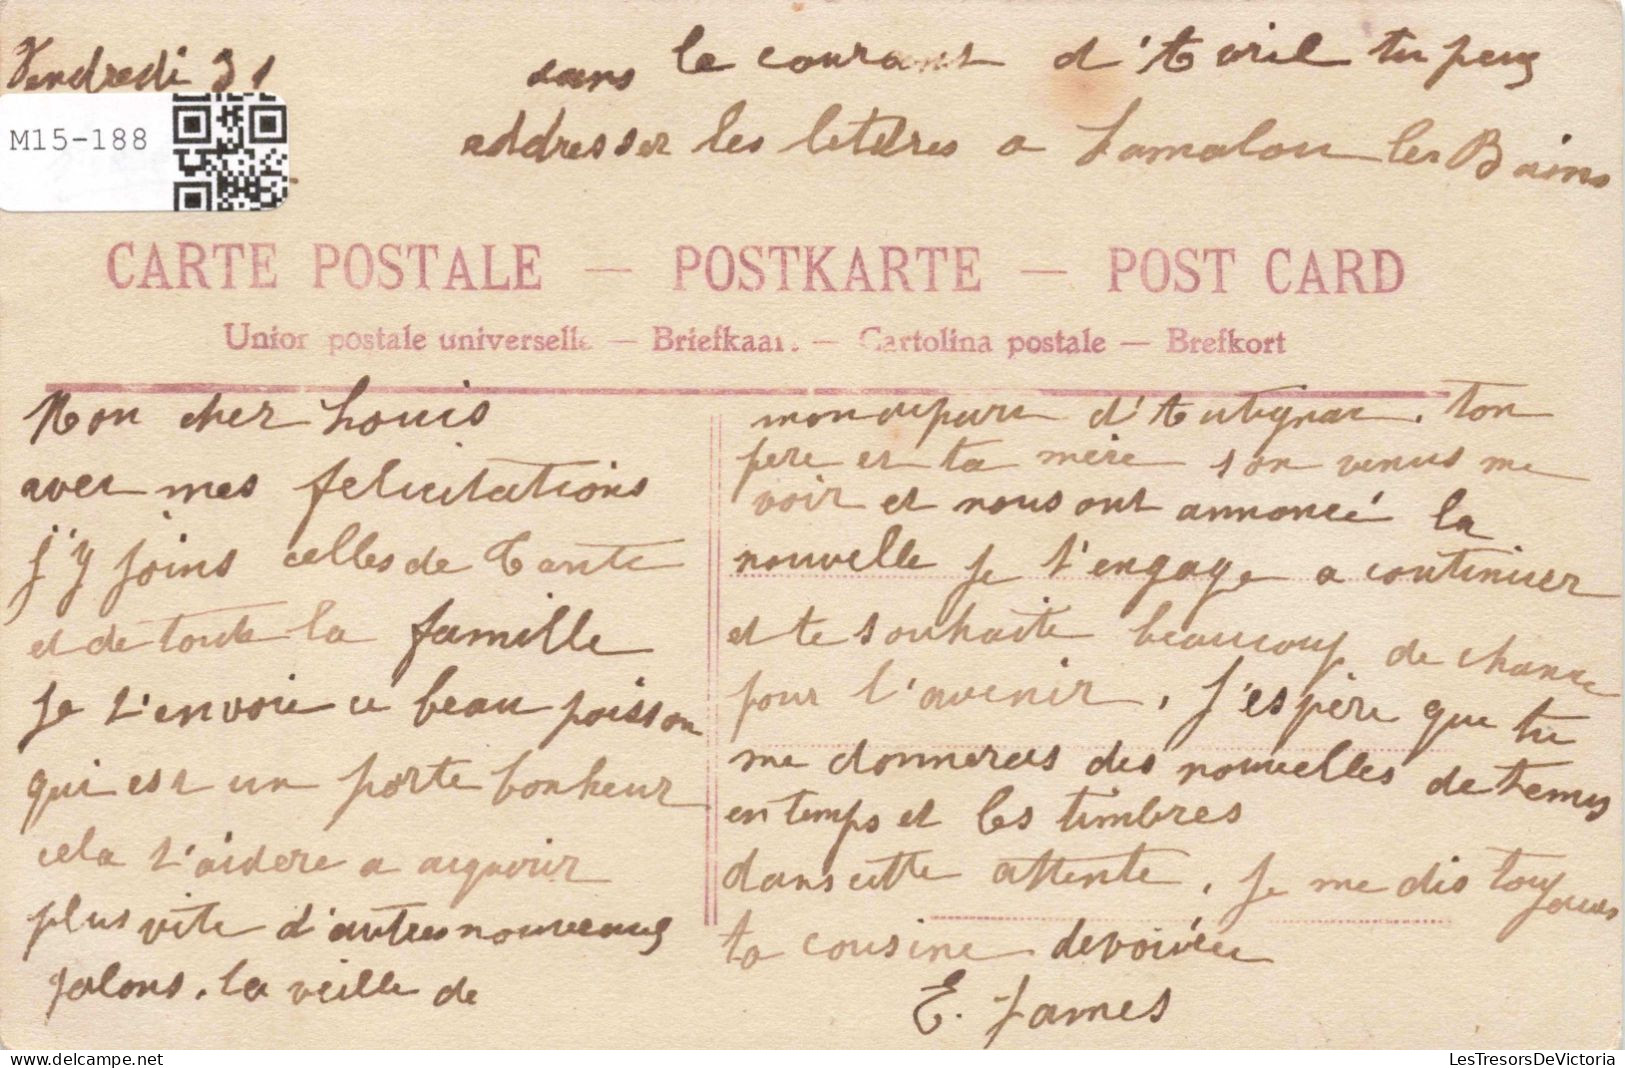 Vendredi 31
dans le courant d'Avril tu peux
addresser les lettres a Lamalou les Bains
M15-188
CARTE POSTALE — POSTKARTE — POST CARD
Union postale universelle — Briefkaart — Cartolina postale — Brefkort
Mon cher Louis
avec mes felicitations
j'y joins celles de Tante
et de toute la famille
Je t'envoie ce beau poisson
qui est un porte bonheur
cela t'aidera a acquerir
plus vite d'autres nouveaux
galons. la veille de
mon depart d'Autignac. ton
pere et ta mère son venus me
voir et nous ont annoncé la
nouvelle je t'engage a continuer
et te souhaite beaucoup de chance
pour l'avenir, J'espère que tu
me donneras des nouvelles de temps
en temps et les timbres
dans cette attente, je me dis toujours
ta cousine devouée
E. James
LesTresorsDeVictoria
delcampe.net